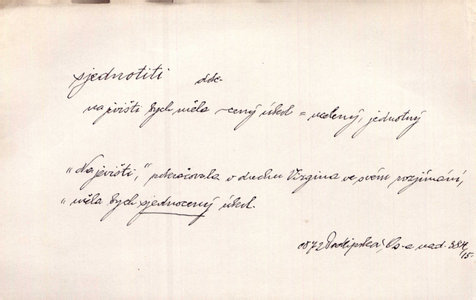 sjednotiti dok.
na jevišti bych měla -cený úkol = ucelený, jednotný
"Na jevišti," pokračovala v duchu Regina ve svém rozjímání,
"měla bych sjednocený úkol.
1872 Podlipská, Os-a nad.